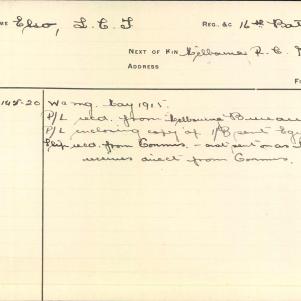 ME Elso, L. C. J REG. &C 16th Bat
NEXT OF KIN Melbourne R. C.
ADDRESS
FO
145-20 W amg. May 1915.
P/L recd. from Melbourne Bureau
P/L enclosing copy of sent
Slip recd. from Commrs. - not sent on as
receives direct from Commrs.